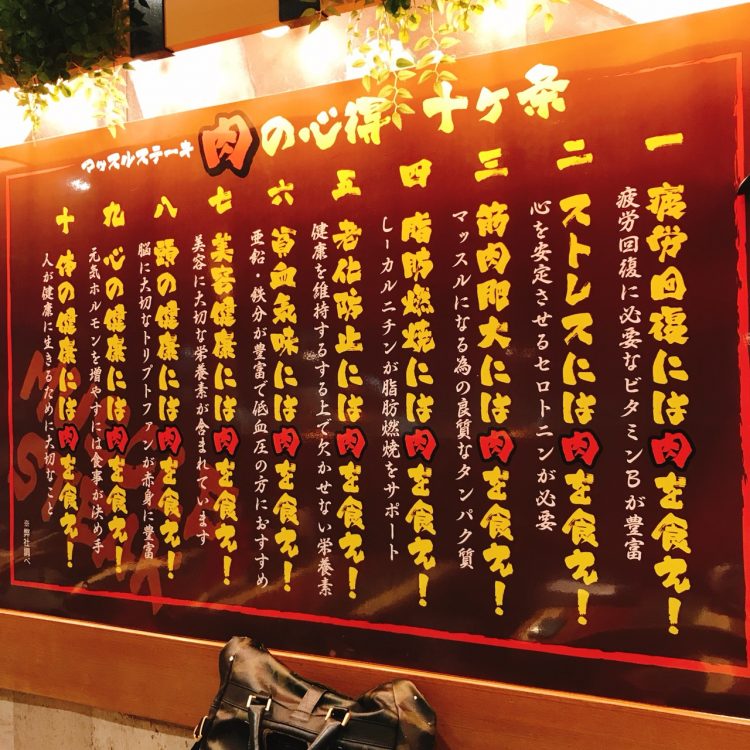 マッスルステーキ 肉の心得 十ヶ条
一 疲労回復には肉を食え！
疲労回復に必要なビタミンBが豊富
二 ストレスには肉を食え！
心を安定させるセロトニンが必要
三 筋肉肥大には肉を食え！
マッスルになる為の良質なタンパク質
四 脂肪燃焼には肉を食え！
Lーカルニチンが脂肪燃焼をサポート
五 老化防止には肉を食え！
健康を維持するする上で欠かせない栄養素
六 貧血気味には肉を食え！
亜鉛・鉄分が豊富で低血圧の方におすすめ
七 美容健康には肉を食え！
美容に大切な栄養素が含まれています
八 頭の健康には肉を食え！
脳に大切なトリプトファンが赤身に豊富
九 心の健康には肉を食え！
元気ホルモンを増やすには食事が決め手
十 体の健康には肉を食え！
人が健康に生きるために大切なこと
※弊社調べ